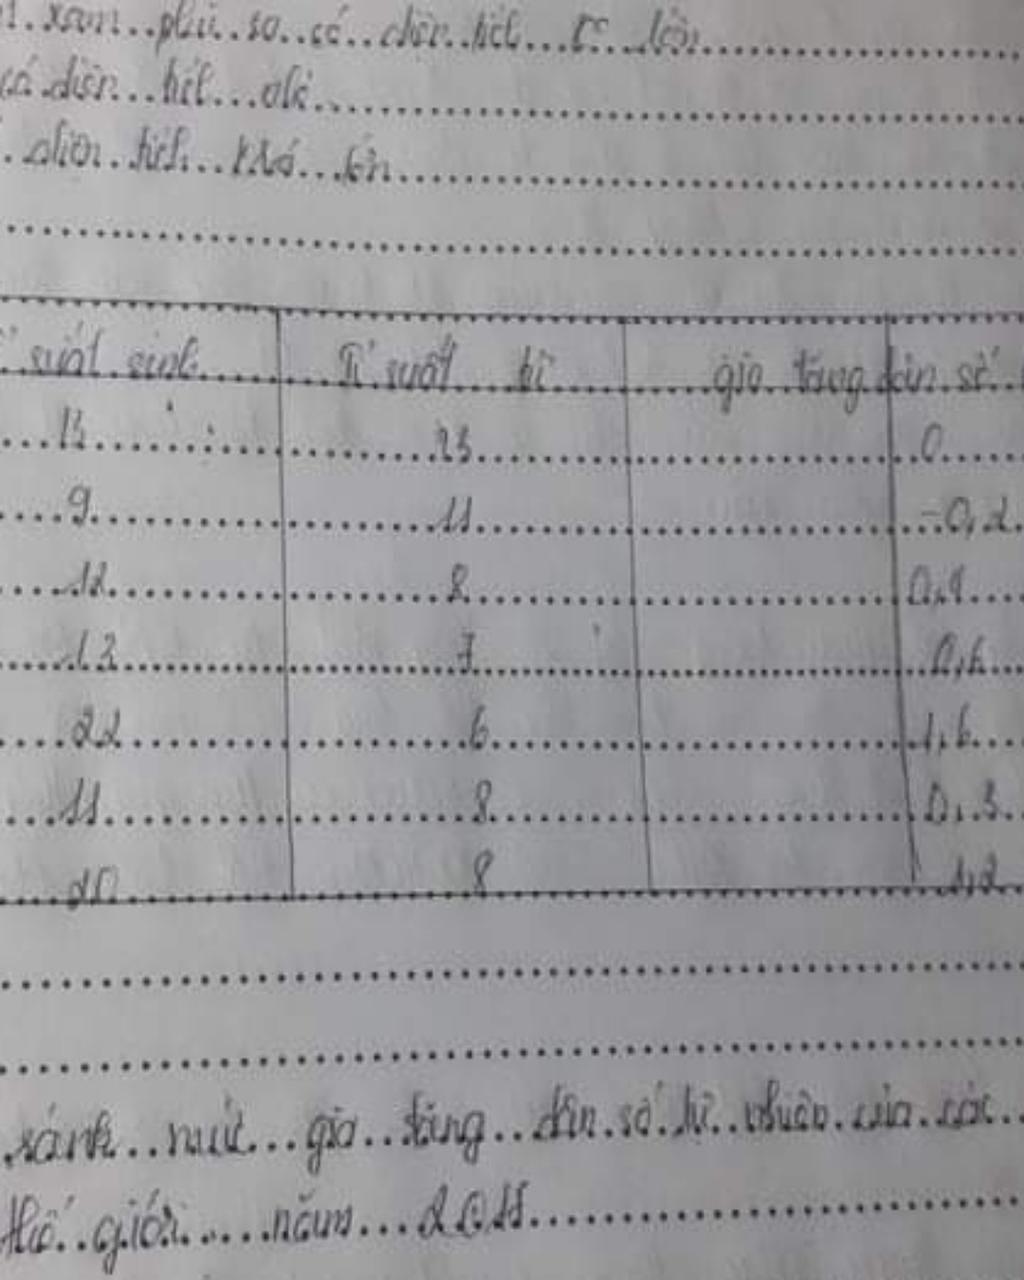 xam phù sa có diện tích rất lớn
có diện tích
diện tích khá lớn
suất sinh Tỉ suất tử gia tăng dân số
13 0
9 11 -0,2
12 8
13 7 0,6
22 6 1,6
11 8 0,3
20 8 1,2
sánh mức gia tăng dân số tự nhiên của các
thế giới năm